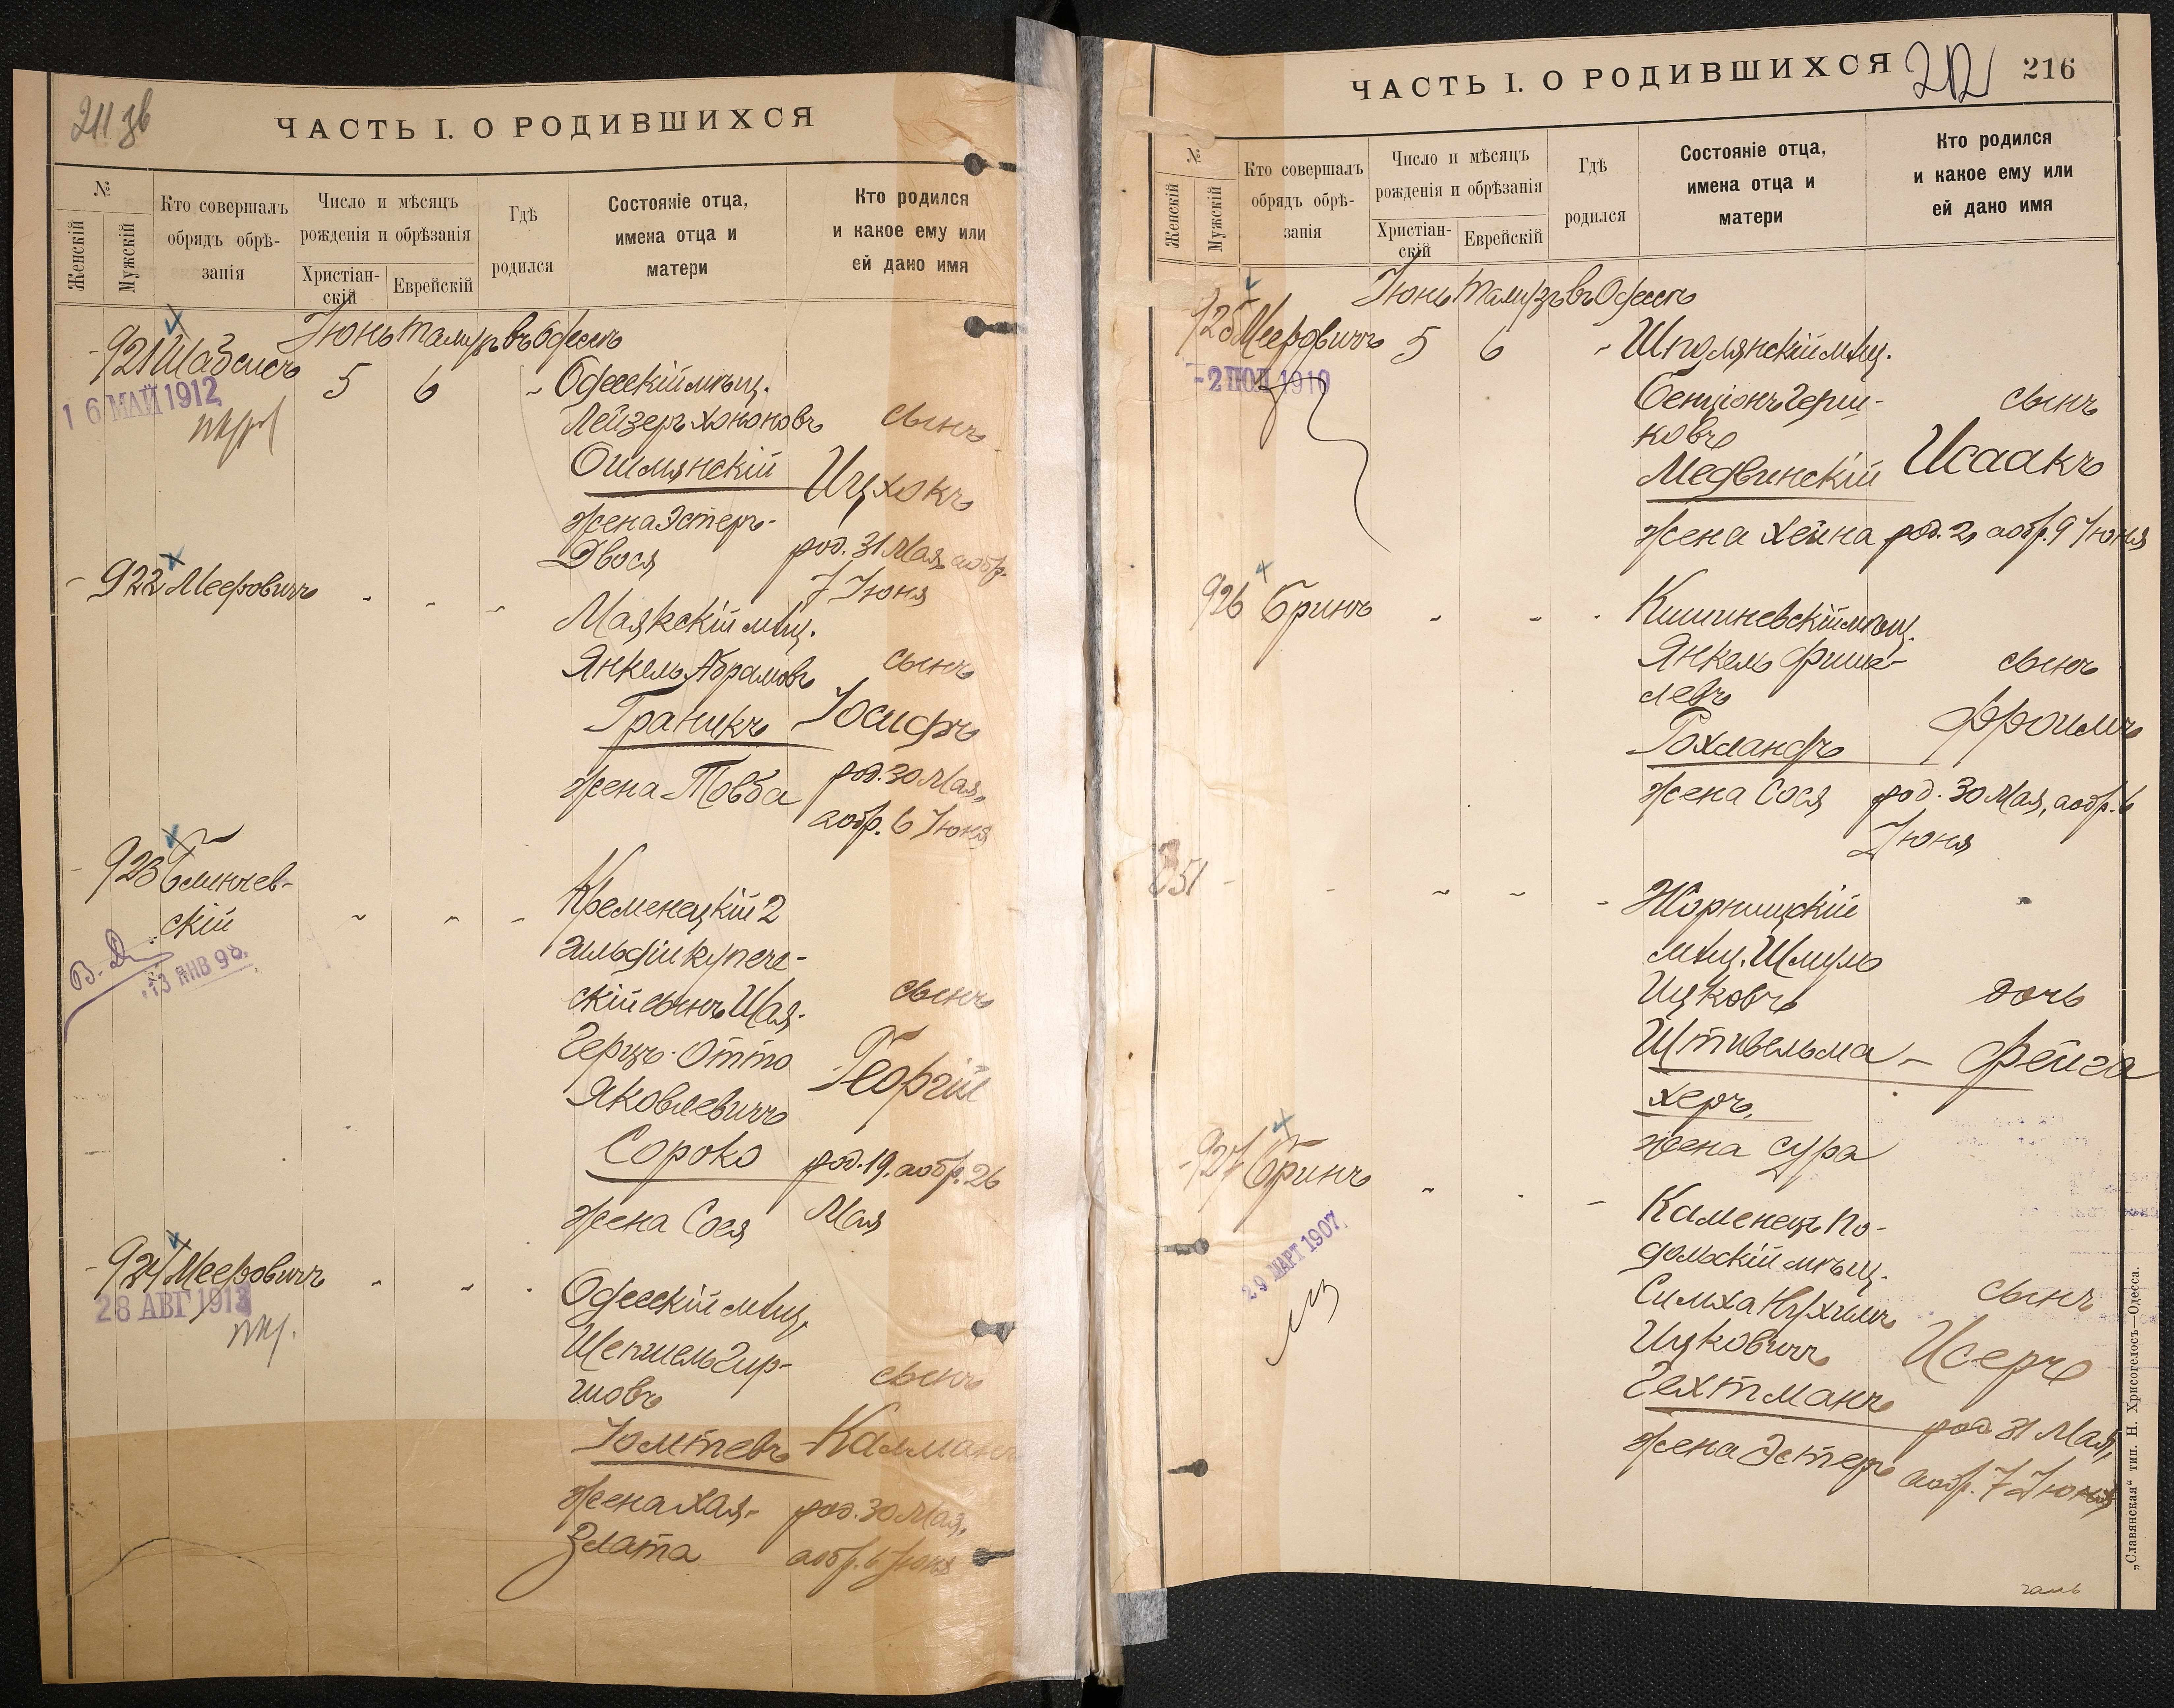 211 зв
ЧАСТЬ I. О РОДИВШИХСЯ
№
Женскій
Мужскій
Кто совершалъ
обрядъ обрѣ-
занія
Число и мѣсяцъ
рожденія и обрѣзанія
Христіан-
скій
Еврейскій
Гдѣ
родился
Состояніе отца,
имена отца и
матери
Кто родился
и какое ему или
ей дано имя
Іюнь Тамузъ въ Одессѣ
921 Шабсисъ 5 6 -
16 МАЙ 1912
Одесскій мѣщ.
Лейзеръ Хононовъ сынъ
Ошмянскій Ицхокъ
жена Эстеръ-
Двося род. 31 Мая, а обр.
7 Іюня
922 Мееровичъ - - -
Маякскій мѣщ.
Янкель Абрамовъ сынъ
Граникъ Іосифъ
жена Товба род. 30 Мая,
а обр. 6 Іюня
923 Блинчев-
скій
В. Д.
13 ЯНВ 98.
Кременецкій 2
гильдіи купече-
скій сынъ Шая- сынъ
Герцъ-Отто Георгій
Яковлевичъ
Сороко род. 19, а обр. 26
жена Сося Мая
924 Мееровичъ - - -
28 АВГ 1913
Одесскій мѣщ.
Шепшель Гир-
шовъ сынъ
Іомтевъ Калманъ
жена Хая- род. 30 Мая,
Злата а обр. 6 Іюня
ЧАСТЬ I. О РОДИВШИХСЯ
212 216
№
Женскій
Мужскій
Кто совершалъ
обрядъ обрѣ-
занія
Число и мѣсяцъ
рожденія и обрѣзанія
Христіан-
скій
Еврейскій
Гдѣ
родился
Состояніе отца,
имена отца и
матери
Кто родился
и какое ему или
ей дано имя
Іюнь Тамузъ въ Одессѣ
925 Мееровичъ 5 6 -
1910
Шполянскій мѣщ.
Бенціонъ Герш- сынъ
ковъ
Медвинскій Исаакъ
жена Хейна род. 2, а обр. 9 Іюня
926 Бринъ - - -
Кишиневскій мѣщ.
Янкель Фише- сынъ
левъ
Рохландъ Фроимъ
жена Сося род. 30 Мая, а обр. 6
Іюня
851 - - - - -
Жорнищскій
мѣщ. Шмуль
Ицковъ дочь
Штивельма- Фейга
херъ,
жена Сура
927 Бринъ - - -
29 МАРТ 1907
Каменецъ По-
дольскій мѣщ.
Симха Нухимъ сынъ
Ицковичъ
Гехтманъ Исеръ
жена Эстеръ род. 31 Мая,
а обр. 7 Іюня
„Славянская“ тип. Н. Хрисогелосъ—Одесса.